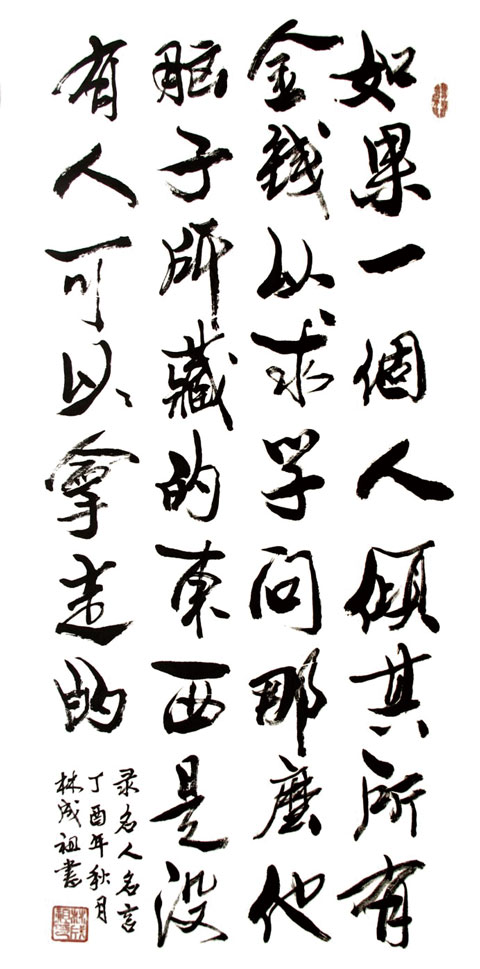 如果一個人傾其所有
金钱以求学问那麽他
脑子所藏的東西是没
有人可以拿走的
录名人名言
丁酉年秋月
林成祖書